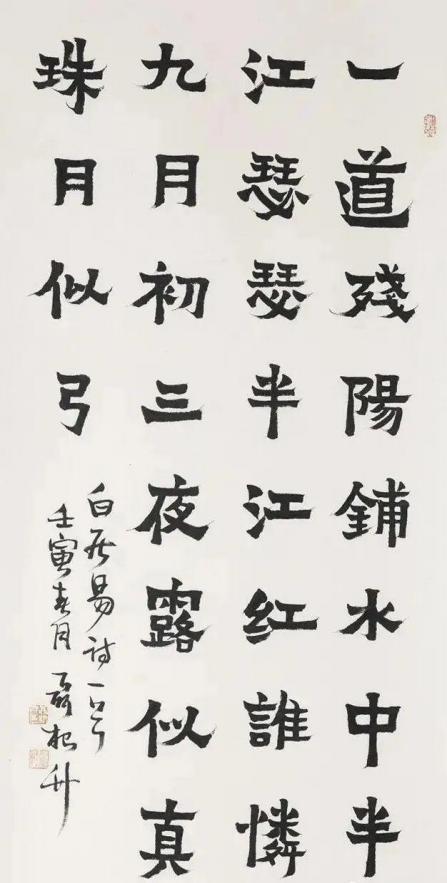 一道殘陽鋪水中半
江瑟瑟半江红誰憐
九月初三夜露似真
珠月似弓
白居易诗一首
壬寅春月